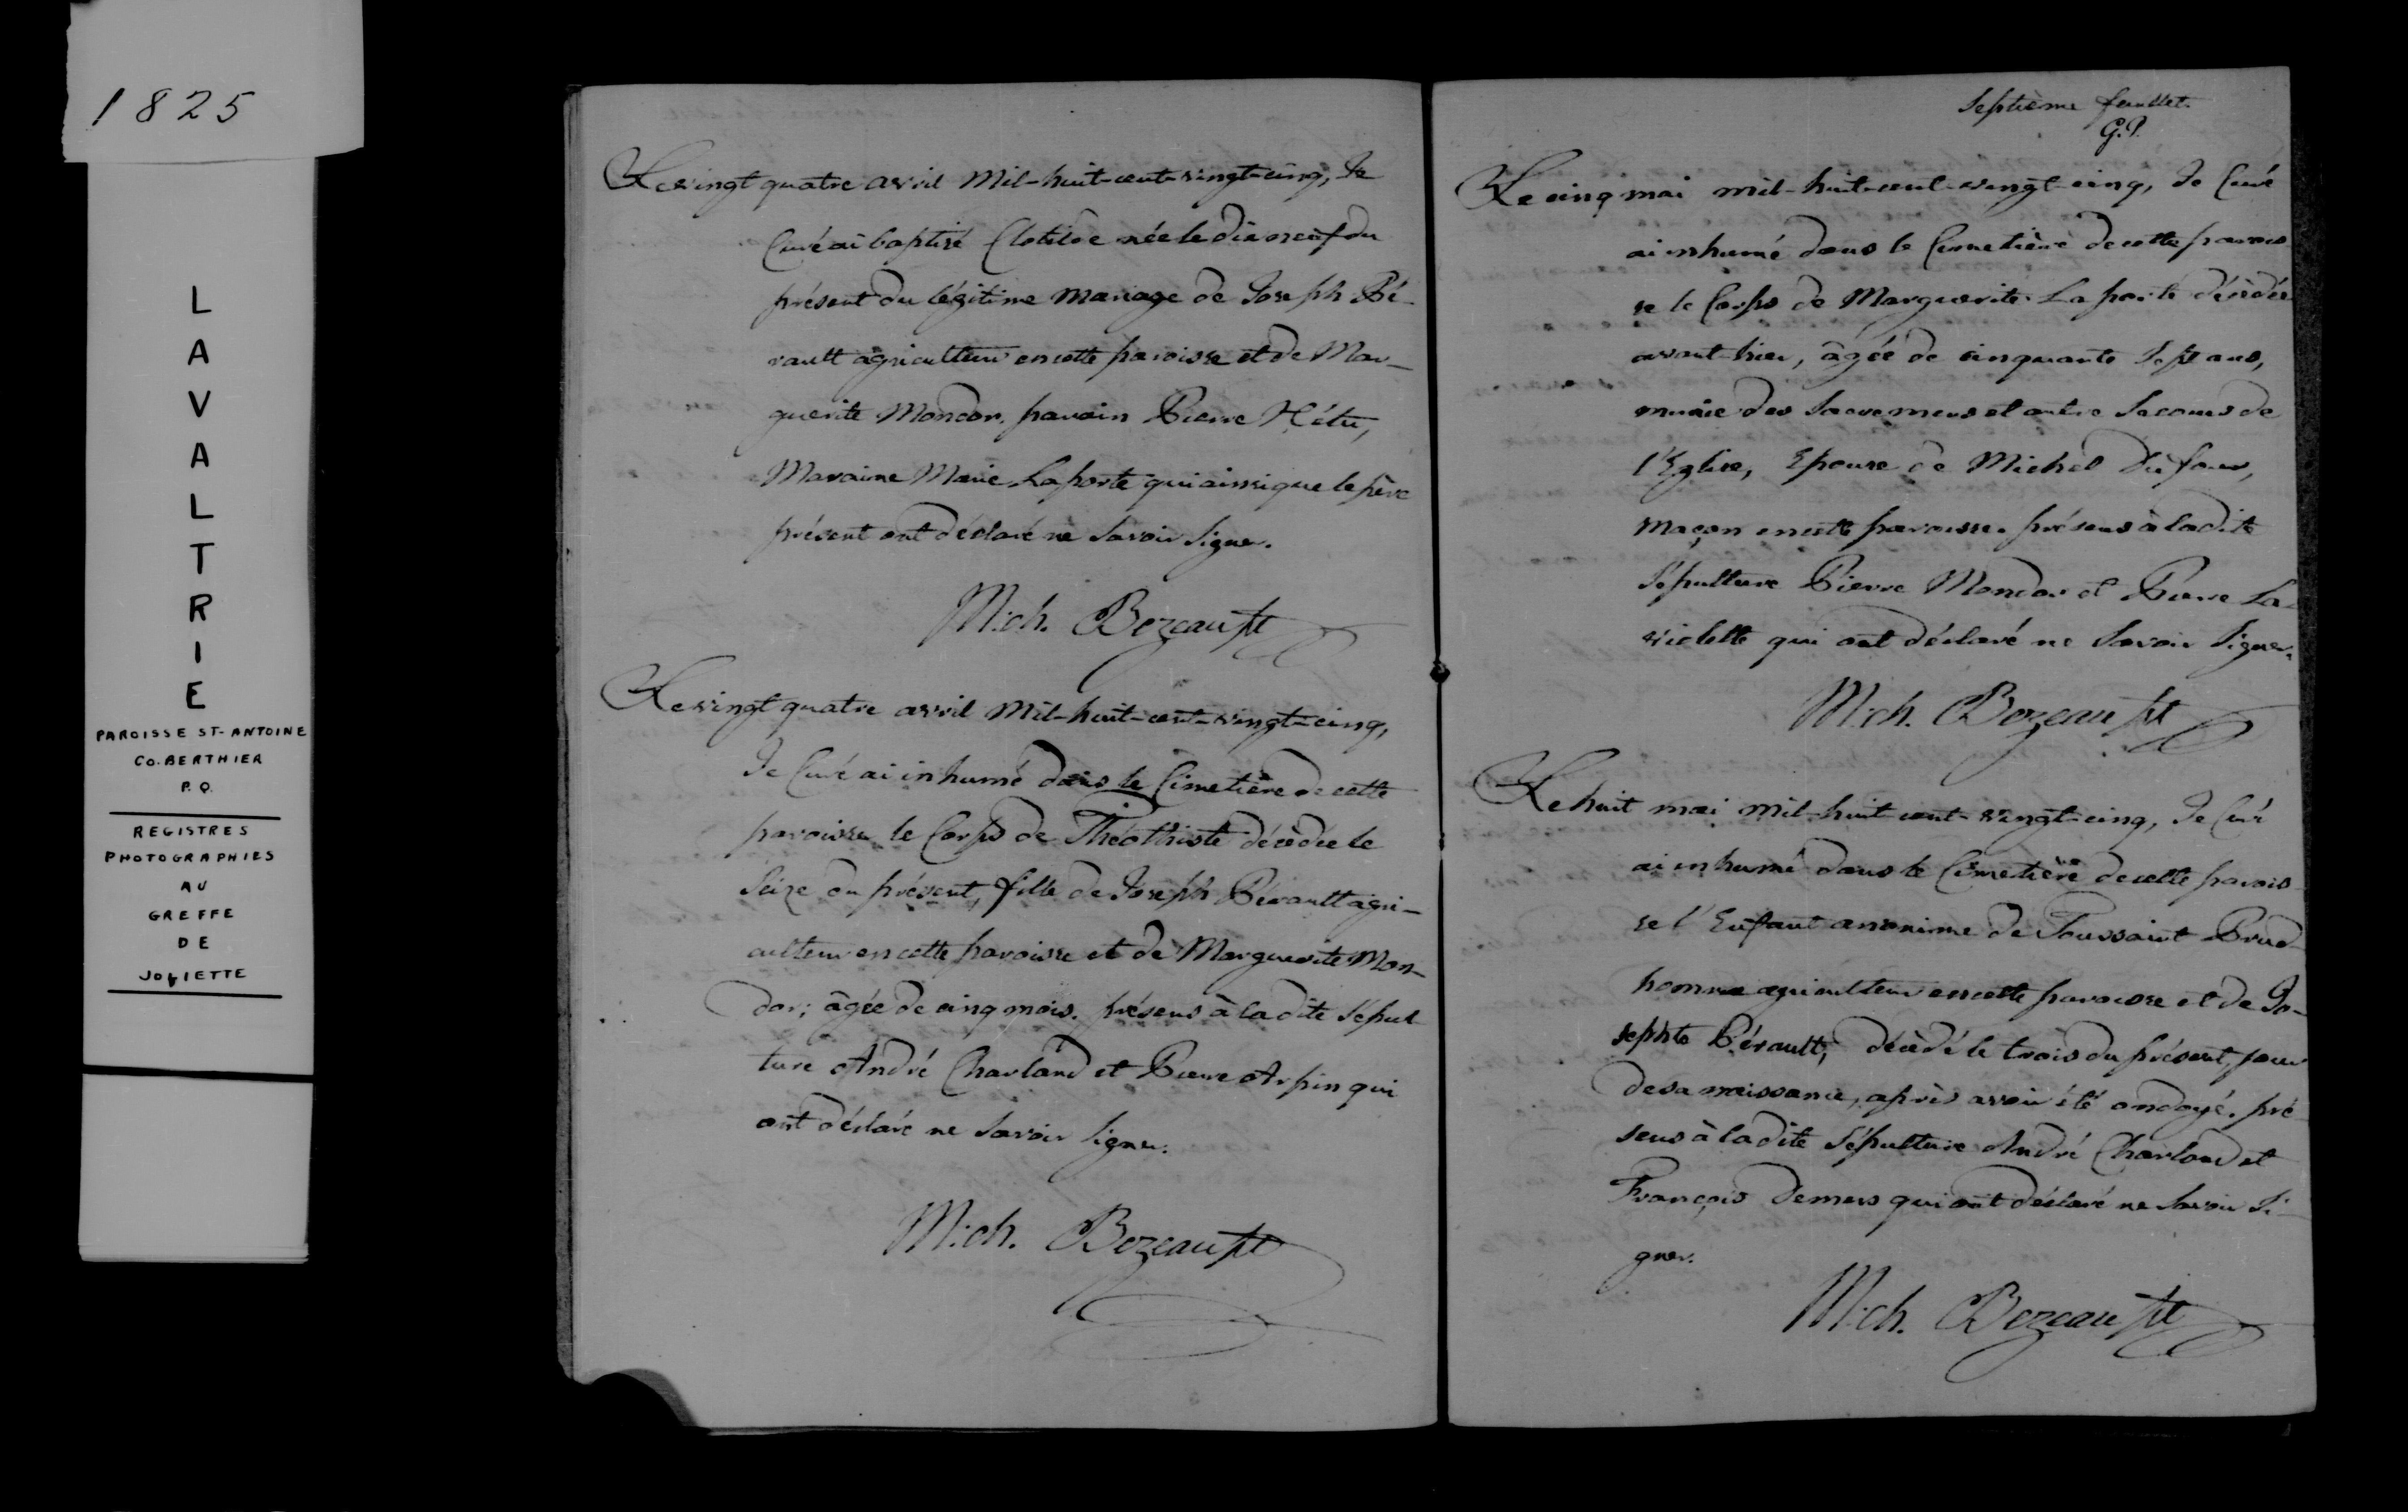 1825
L
A
V
A
L
T
R
I
E
PAROISSE ST-ANTOINE
CO. BERTHIER
P.Q.
REGISTRES
PHOTOGRAPHIES
AU
GREFFE
DE
JOLIETTE
Le vingt quatre avril mil-huit-cent-vingt-cinq, Je
Curé ai baptisé Clotilde née le dix neuf du
présent du légitime mariage de Joseph Pé-
rault agriculteur en cette paroisse et de Mar-
guerite Mondor. parain Pierre Hétu,
Maraine Marie Laporte qui ainsi que le père
présent ont déclaré ne savoir signer.
Mich. Bezeau ptr
Le vingt quatre avril mil-huit-cent-vingt-cinq,
Je Curé ai inhumé dans le Cimetière de cette
paroisse le Corps de Théothiste décédée le
seize du présent, fille de Joseph Pérault agri-
culteur en cette paroisse et de Marguerite Mon-
dor; âgée de cinq mois. présens à la dite sépul
ture André Charland et Pierre Arpin qui
ont déclaré ne savoir signer.
Mich. Bezeau ptr
Septième feuillet.
G.P.
Le cinq mai mil-huit-cent-vingt-cinq, Je Curé
ai inhumé dans le Cimetière de cette parois
se le Corps de Marguerite Laporte décédée
avant-hier, âgée de cinquante sept ans,
munie des sacremens et autre secours de
l'Eglise, Epouse de Michel Dufour,
maçon en cette paroisse. présens à la dite
sépulture Pierre Mondor et Pierre La-
violette qui ont déclaré ne savoir signer.
Mich. Bezeau ptr
Le huit mai mil-huit-cent-vingt-cinq, Je Curé
ai inhumé dans le Cimetière de cette parois
se l'Enfant anonime de Toussaint Prud-
homme agriculteur en cette paroisse et de Jo-
sephte Pérault, décédé le trois du présent, jour
de sa naissance, après avoir été ondoyé. pré
sens à la dite sépulture André Charland et
François Demers qui ont déclaré ne savoir si-
gner.
Mich. Bezeau ptr